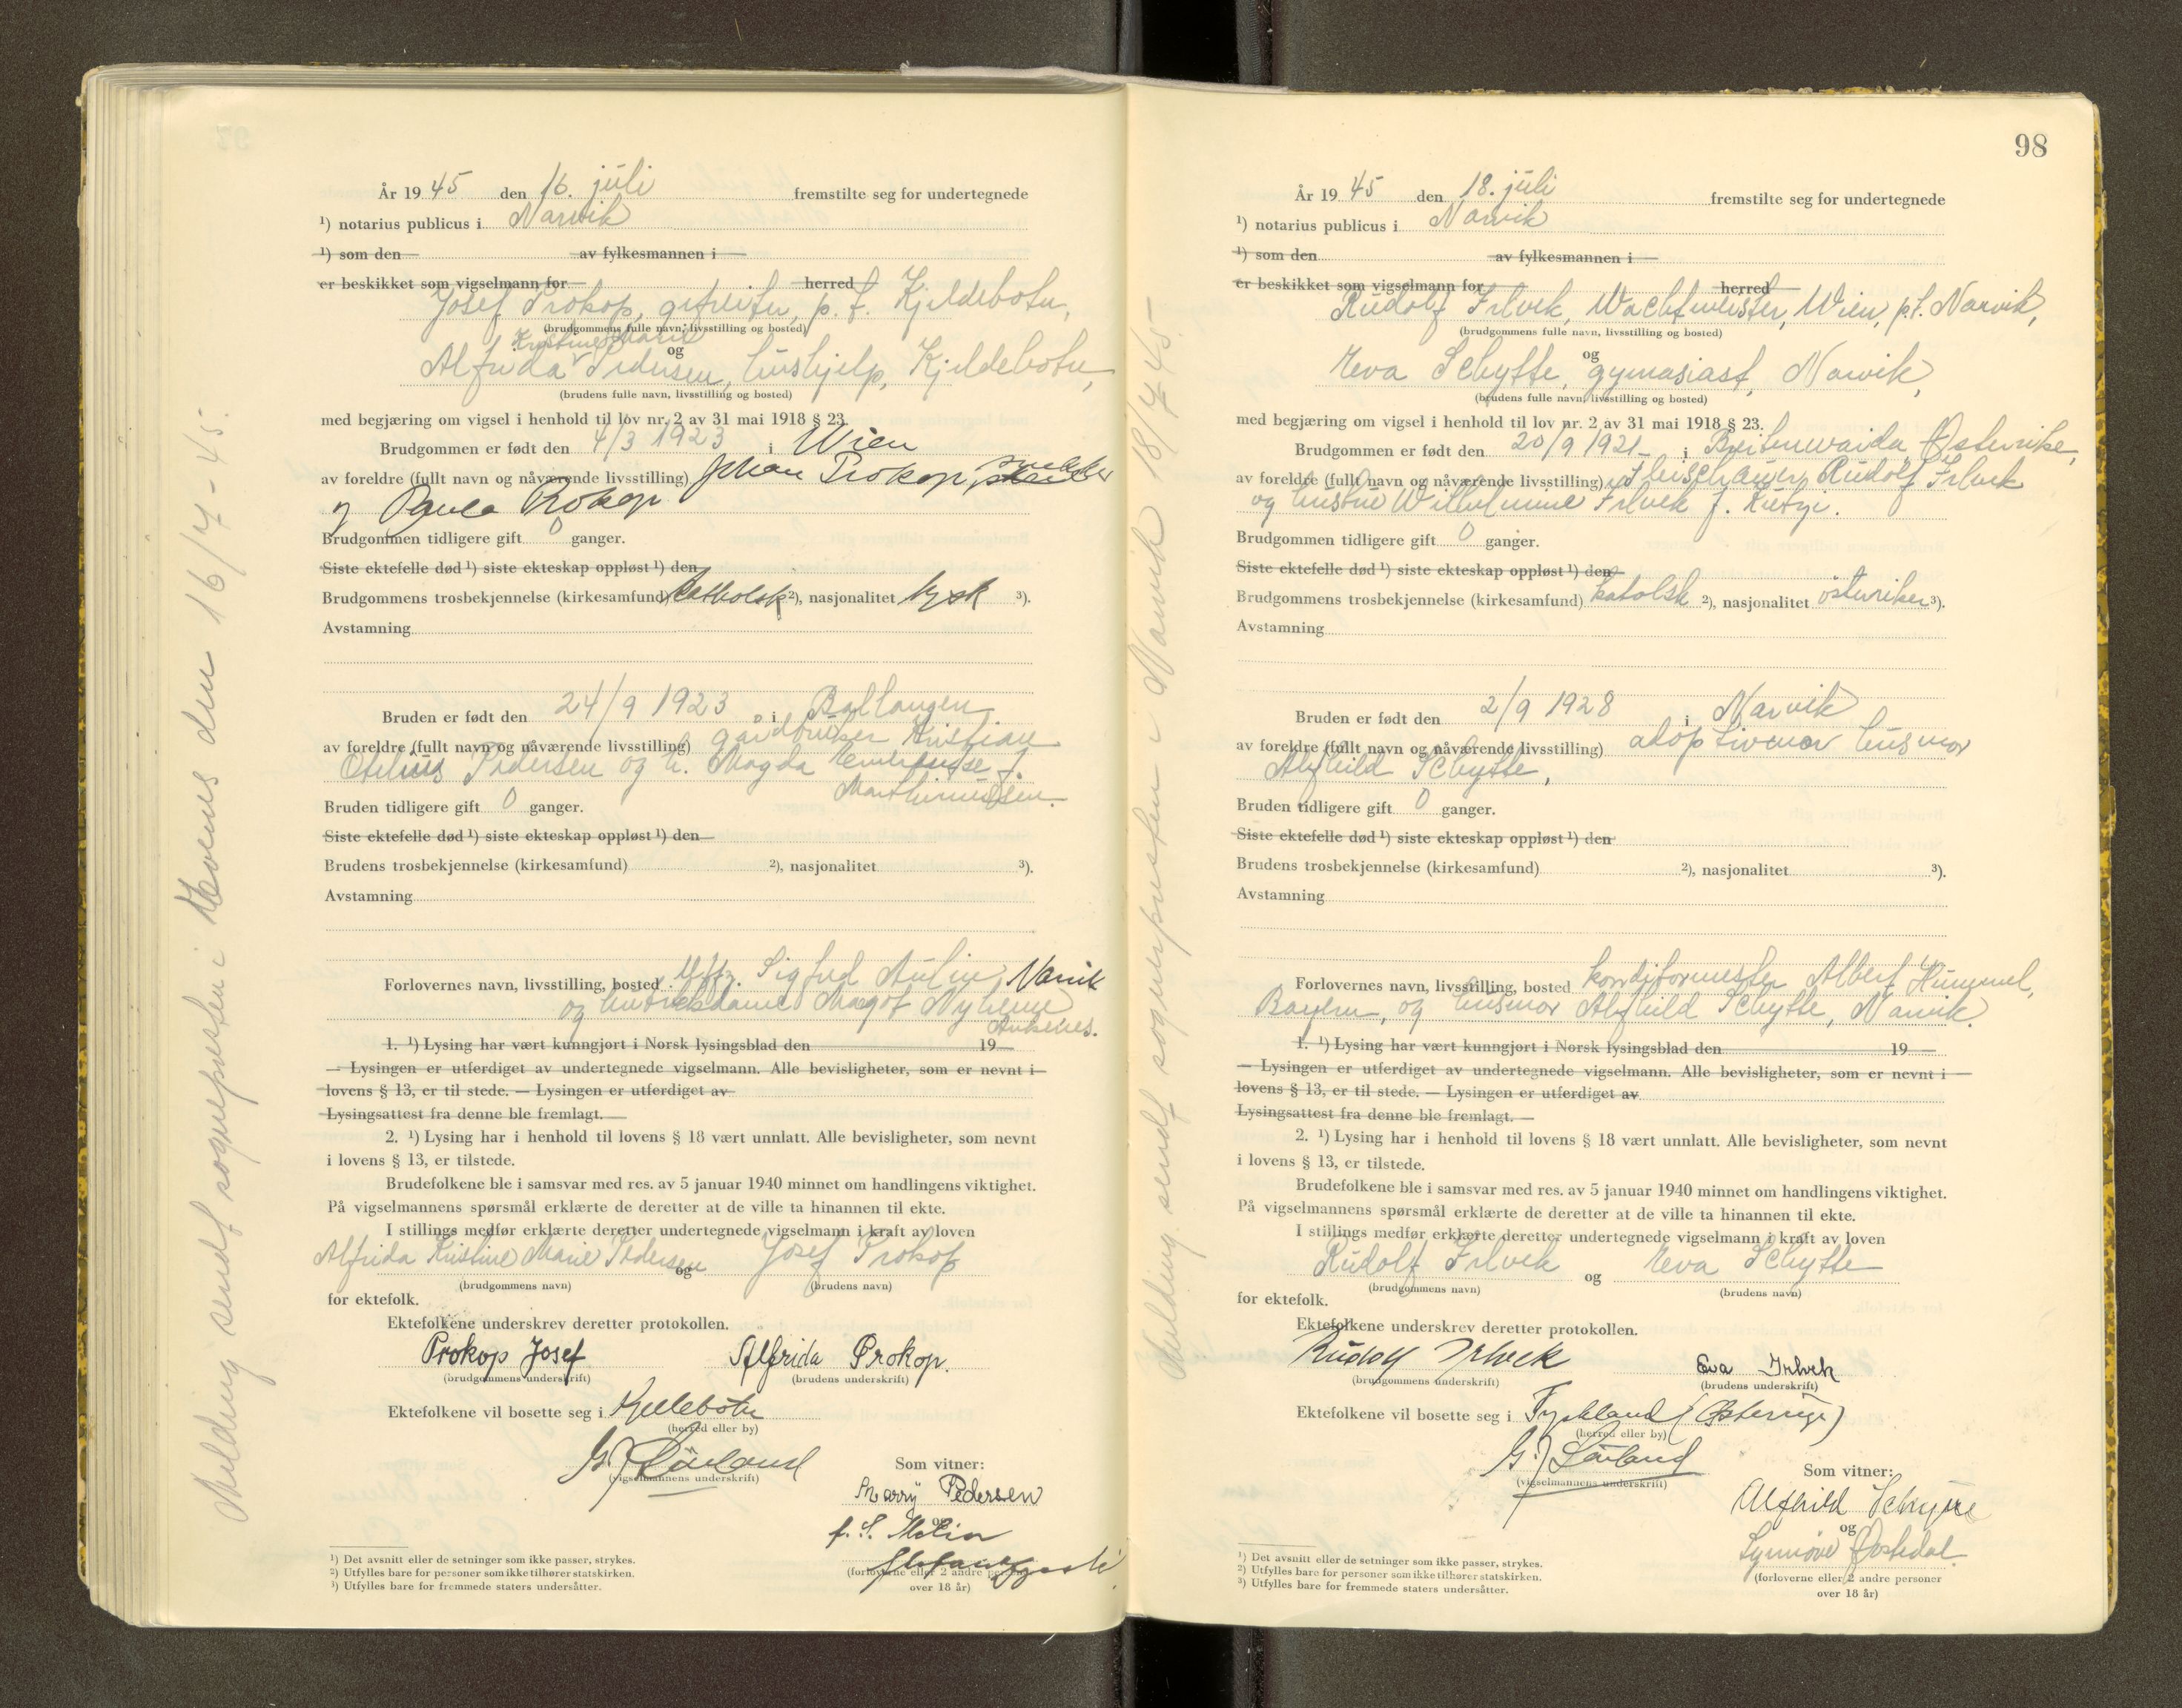 År 19 45 den 16. juli fremstilte seg for undertegnede
¹) notarius publicus i Narvik
¹) som den av fylkesmannen i
er beskikket som vigselmann for herred
Josef Prokop, gefreiter, p. t. Kjeldebotn,
(brudgommens fulle navn, livsstilling og bosted)
Kristine Marie
og
Alfrida Pedersen, hushjelp, Kjeldebotn,
(brudens fulle navn, livsstilling og bosted)
med begjæring om vigsel i henhold til lov nr. 2 av 31 mai 1918 § 23.
Brudgommen er født den 4/3 1923 i Wien
av foreldre (fullt navn og nåværende livsstilling) Johan Prokop,
og Paula Prokop
Brudgommen tidligere gift 0 ganger.
Siste ektefelle død ¹) siste ekteskap oppløst ¹) den
Brudgommens trosbekjennelse (kirkesamfund) katholsk ²), nasjonalitet tysk ³).
Avstamning
Bruden er født den 24/9 1923 i Ballangen
av foreldre (fullt navn og nåværende livsstilling) gårdbruker Kristian
Pedersen og h. Magda f.
Bruden tidligere gift 0 ganger.
Siste ektefelle død ¹) siste ekteskap oppløst ¹) den
Brudens trosbekjennelse (kirkesamfund) ²), nasjonalitet ³).
Avstamning
Forlovernes navn, livsstilling, bosted Uffz. Narvik
og Nyheim
Ankenes.
1. ¹) Lysing har vært kunngjort i Norsk lysingsblad den 19
— Lysingen er utferdiget av undertegnede vigselmann. Alle bevisligheter, som er nevnt i
lovens § 13, er til stede. — Lysingen er utferdiget av
Lysingsattest fra denne ble fremlagt. —
2. ¹) Lysing har i henhold til lovens § 18 vært unnlatt. Alle bevisligheter, som nevnt
i lovens § 13, er tilstede.
Brudefolkene ble i samsvar med res. av 5 januar 1940 minnet om handlingens viktighet.
På vigselmannens spørsmål erklærte de deretter at de ville ta hinannen til ekte.
I stillings medfør erklærte deretter undertegnede vigselmann i kraft av loven
Alfrida Kristine Marie Pedersen og Josef Prokop
(brudgommens navn) (brudens navn)
for ektefolk.
Ektefolkene underskrev deretter protokollen.
Prokop Josef Alfrida Prokop.
(brudgommens underskrift) (brudens underskrift)
Ektefolkene vil bosette seg i Kjellebotn
(herred eller by)
(vigselmannens underskrift)
Som vitner:
Pedersen
og
(forloverne eller 2 andre personer
over 18 år)
¹) Det avsnitt eller de setninger som ikke passer, strykes.
²) Utfylles bare for personer som ikke tilhører statskirken.
³) Utfylles bare for fremmede staters undersåtter.
Melding sendt sognepresten i den 16/7-45.
98
År 19 45 den 18. juli fremstilte seg for undertegnede
¹) notarius publicus i Narvik
¹) som den av fylkesmannen i
er beskikket som vigselmann for herred
Rudolf Irlvek, Wachtmeister, Wien, p.t. Narvik,
(brudgommens fulle navn, livsstilling og bosted)
og
Eva Schytte, gymnasiast, Narvik,
(brudens fulle navn, livsstilling og bosted)
med begjæring om vigsel i henhold til lov nr. 2 av 31 mai 1918 § 23.
Brudgommen er født den 20/9 1921 i Breitenwaida, Østerrike,
av foreldre (fullt navn og nåværende livsstilling) Rudolf Irlvek
og hustru Wilhelmine Irlvek f.
Brudgommen tidligere gift 0 ganger.
Siste ektefelle død ¹) siste ekteskap oppløst ¹) den
Brudgommens trosbekjennelse (kirkesamfund) katolsk ²), nasjonalitet østerriker ³).
Avstamning
Bruden er født den 2/9 1928 i Narvik
av foreldre (fullt navn og nåværende livsstilling) adoptivmor husmor
Alfhild Schytte,
Bruden tidligere gift 0 ganger.
Siste ektefelle død ¹) siste ekteskap oppløst ¹) den
Brudens trosbekjennelse (kirkesamfund) ²), nasjonalitet ³).
Avstamning
Forlovernes navn, livsstilling, bosted konditormester Albert Hummel,
Bayern, og husmor Alfhild Schytte, Narvik.
1. ¹) Lysing har vært kunngjort i Norsk lysingsblad den 19
— Lysingen er utferdiget av undertegnede vigselmann. Alle bevisligheter, som er nevnt i
lovens § 13, er til stede. — Lysingen er utferdiget av
Lysingsattest fra denne ble fremlagt. —
2. ¹) Lysing har i henhold til lovens § 18 vært unnlatt. Alle bevisligheter, som nevnt
i lovens § 13, er tilstede.
Brudefolkene ble i samsvar med res. av 5 januar 1940 minnet om handlingens viktighet.
På vigselmannens spørsmål erklærte de deretter at de ville ta hinannen til ekte.
I stillings medfør erklærte deretter undertegnede vigselmann i kraft av loven
Rudolf Irlvek og Eva Schytte
(brudgommens navn) (brudens navn)
for ektefolk.
Ektefolkene underskrev deretter protokollen.
Rudolf Irlvek Eva Irlvek
(brudgommens underskrift) (brudens underskrift)
Ektefolkene vil bosette seg i Tyskland (Østerrige)
(herred eller by)
(vigselmannens underskrift)
Som vitner:
Alfhild Schytte
og
Synnøve Østedal.
(forloverne eller 2 andre personer
over 18 år)
¹) Det avsnitt eller de setninger som ikke passer, strykes.
²) Utfylles bare for personer som ikke tilhører statskirken.
³) Utfylles bare for fremmede staters undersåtter.
Melding sendt sognepresten i Narvik 18/7 45.